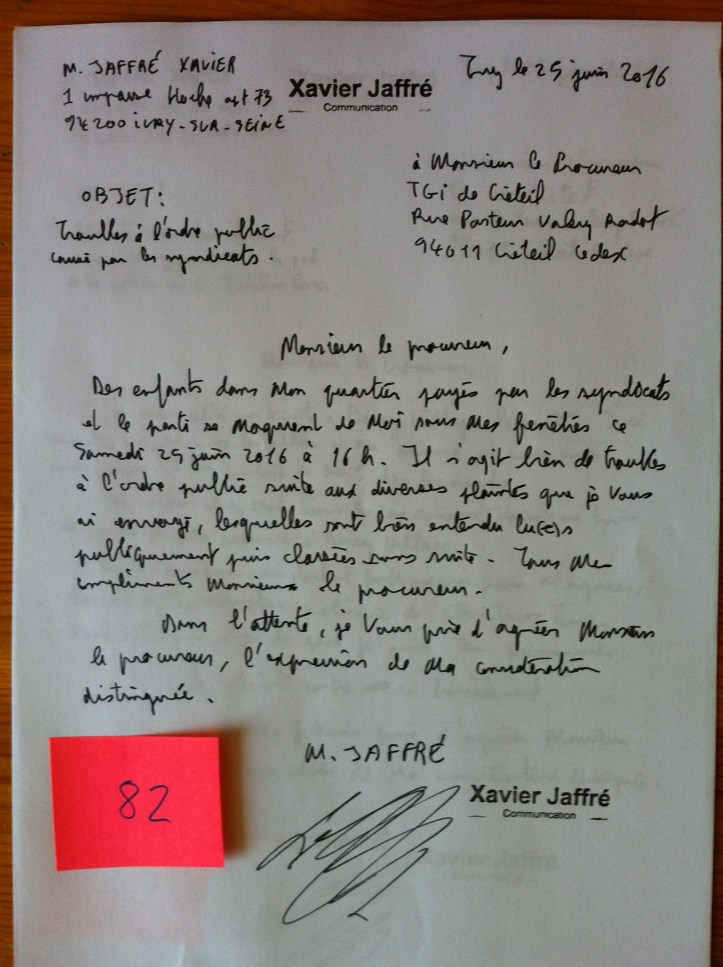 M. JAFFRÉ XAVIER
1 impasse Hoche apt 73
94200 IVRY-SUR-SEINE
Xavier Jaffré
Communication
Ivry le 25 juin 2016
à Monsieur le Procureur
TGI de Créteil
Rue Pasteur Valery Radot
94011 Créteil Cedex
OBJET:
Troubles à l'ordre public
causé par les syndicats.
Monsieur le procureur,
Des enfants dans mon quartier payés par les syndicats
et le parti se moquent de moi sous mes fenêtres ce
Samedi 25 juin 2016 à 16h. Il s'agit bien de troubles
à l'ordre public suite aux diverses plaintes que je vous
ai envoyé, lesquelles sont bien entendu lu(e)s
publiquement puis classées sans suite. Tous mes
compliments Monsieur le procureur.
Dans l'attente, je vous prie d'agréer Monsieur
le procureur, l'expression de ma considération
distinguée.
M. JAFFRÉ
82
Xavier Jaffré
Communication